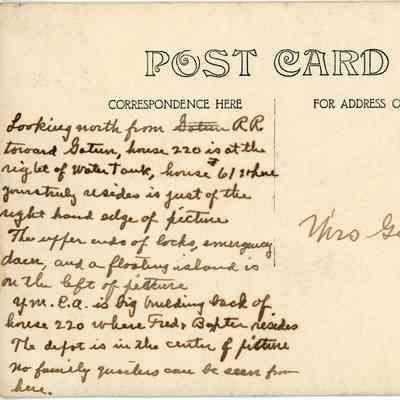 POST CARD
CORRESPONDENCE HERE
FOR ADDRESS O
Looking north from Gatun RR
toward Gatun, house 220 is at the
right of Water Tank, house #61 where
yours truly resides is just off the
right hand edge of picture
The upper ends of locks, emergency
dam, and a floating island is
on the left of picture
Y.M.C.A. is big building back of
house 220 where Fred Baxter resides
The depot is in the center of picture
No family quarters can be seen from
here.
Mrs Ge